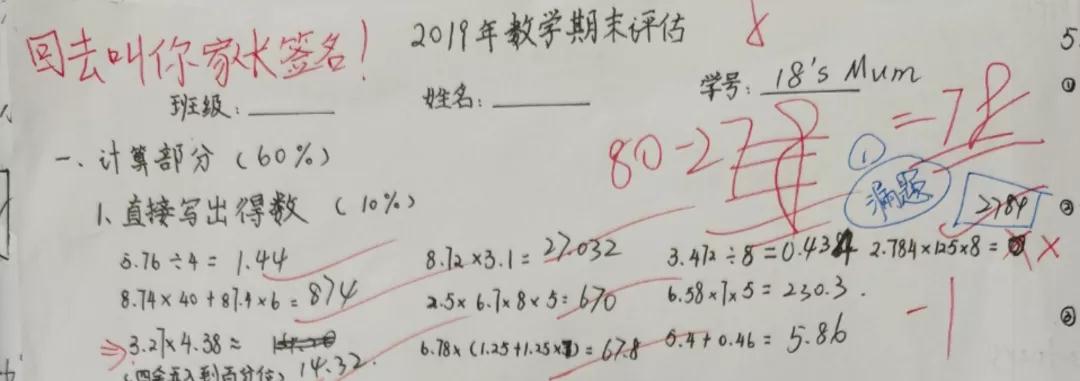 回去叫你家长签名!
2019年数学期末评估
班级:
姓名:
学号: 18's Mum
80-2
=78
一、计算部分(60%)
① 漏题
1、直接写出得数 (10%)
2784
5.76÷4= 1.44
8.72×3.1= 27.032
3.472÷8=0.434
2.784×125×8=
8.74×40+87.4×6=874
2.5×6.7×8×5=670
6.58×7×5=230.3.
-1
3.27×4.38≈ 14.32.
6.78×(1.25+1.25×7)=67.8
5.4+0.46= 5.86
(四舍五入到百分位)
5
①
②